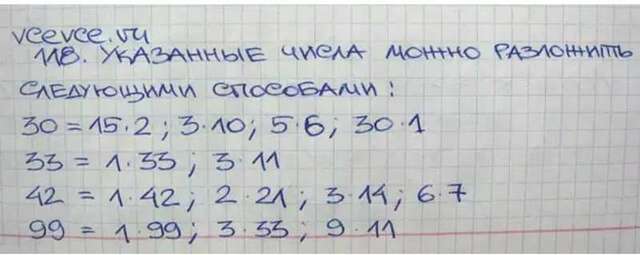 vcevce.ru
118. УКАЗАННЫЕ ЧИСЛА МОЖНО РАЗЛОЖИТЬ
СЛЕДУЮЩИМИ СПОСОБАМИ:
30 = 15·2; 3·10; 5·6; 30·1
33 = 1·33; 3·11
42 = 1·42; 2·21; 3·14; 6·7
99 = 1·99; 3·33; 9·11